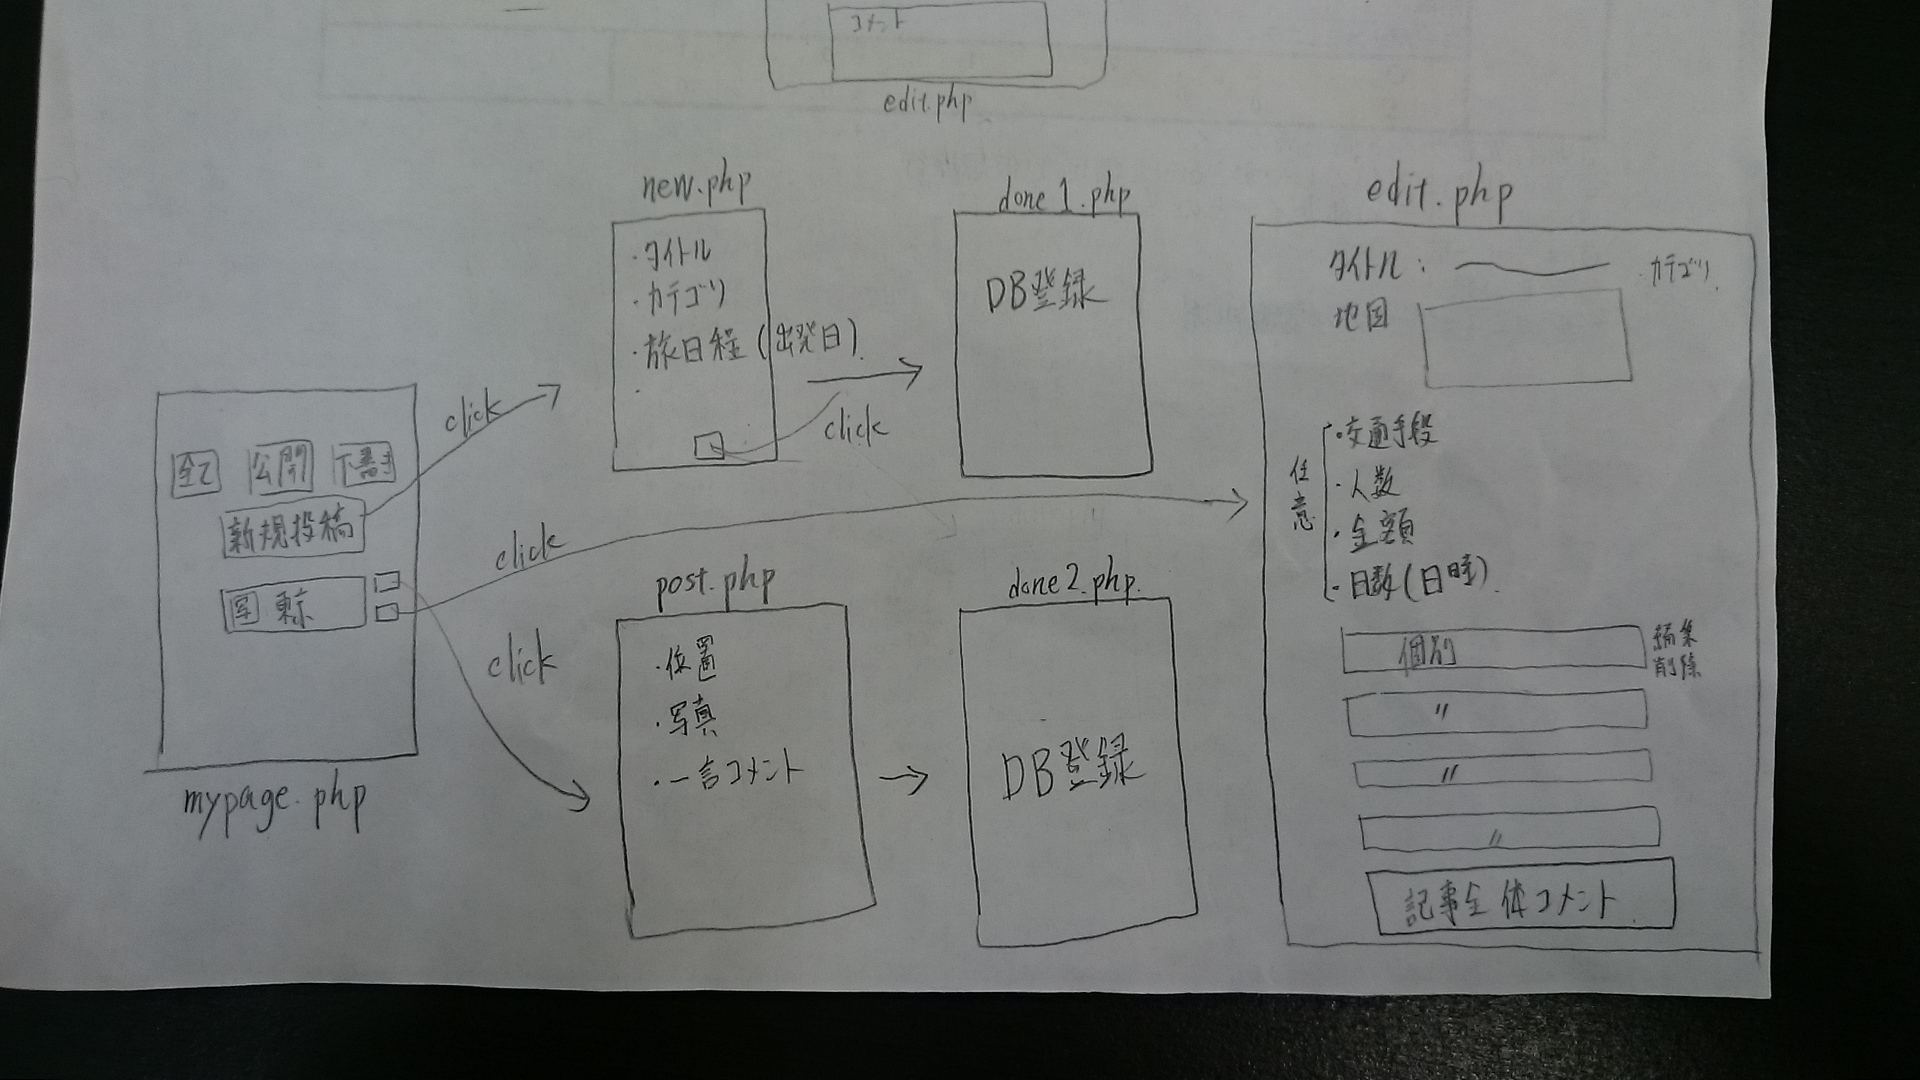 mypage.php
全て 公開 下書き
新規投稿
写 東京
click
click
click
new.php
・タイトル
・カテゴリ
・旅日程(出発日)
・
click
done1.php
DB登録
post.php
・位置
・写真
・一言コメント
done2.php.
DB登録
edit.php
タイトル: カテゴリ
地図
任意
・交通手段
・人数
・金額
・日数(日時)
個別 編集
削除
〃
〃
〃
記事全体コメント
コメント
edit.php